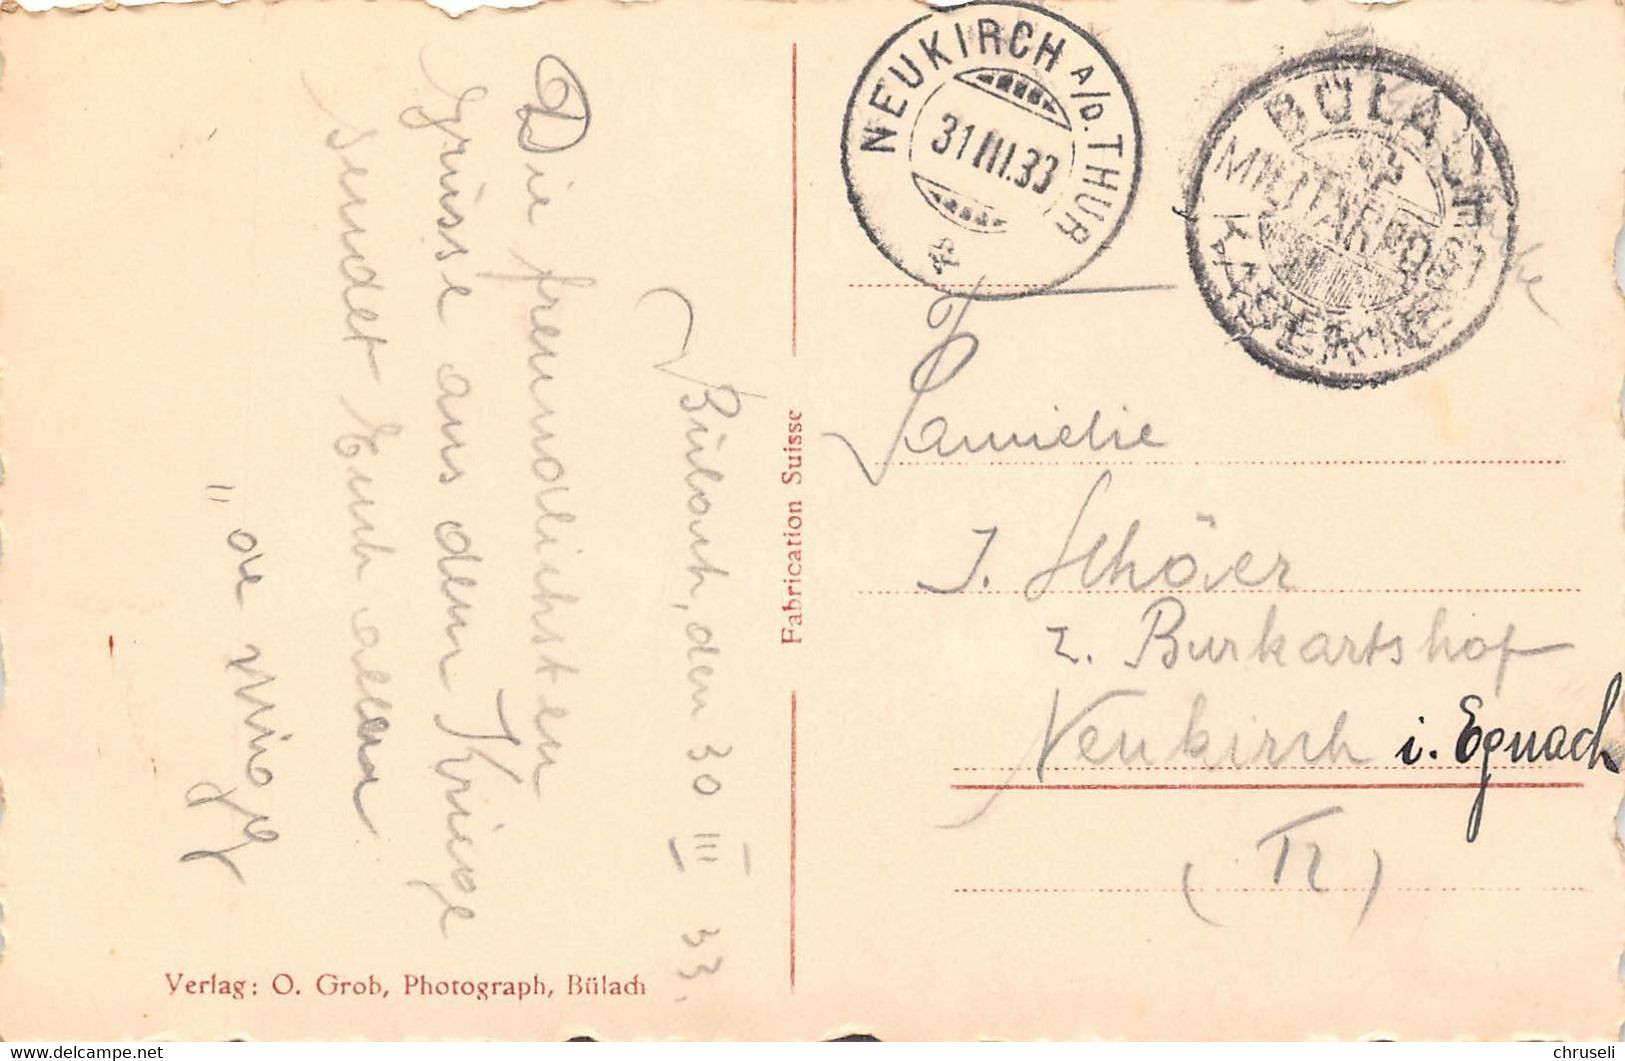 Bülach, den 30 III 33.
Die freundlichsten
Grüsse aus dem Kriege
sendet Euch allen
"
NEUKIRCH A/D. THUR
31 III.33
BÜLACH
MILITÄRPOST
KASERNE
Familie
J. Schär
z. Burkartshof
Neukirch i. Egnach
Fabrication Suisse
Verlag: O. Grob, Photograph, Bülach
www.delcampe.net
chruseli